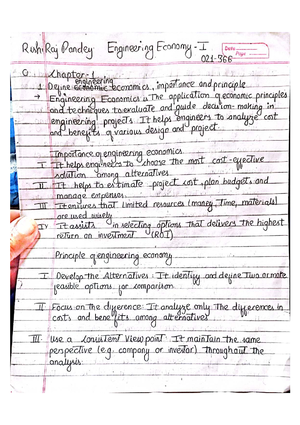 Rushi Raj Pandey Engineering Economy - I
Date
Page
021-366
Q. Chapter-1
engineering
1. Define economic economics, importance and principle
→ Engineering Economics is The application of economic principles
and techniques to evaluate and guide decision-making in
engineering projects. It helps engineers to analyze cost
and benefits of various design and project.
Importance of engineering economics
I It helps engineers to choose the most cost-effective
solution among alternatives.
II It helps to estimate project cost, plan budgets and
manage expenses.
III It ensures that limited resources (money, Time, materials)
are used wisely
IV It assists in selecting options that delivers the highest
return on investment (ROI)
Principle of engineering economy
I Develop the Alternatives: It identify and define Two or more
feasible options for comparison.
II Focus on the difference: It analyze only The differences in
costs and benefits among alternatives
III Use a Consistent Viewpoint: It maintain the same
perspective (e.g. company or investor) Throughout the
analysis.